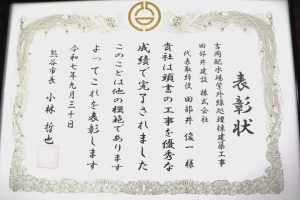 表彰状
吉岡配水場紫外線処理棟建築工事
田部井建設 株式会社
代表取締役 田部井 俊一 様
貴社は頭書の工事を優秀な
成績で完了されました
このことは他の模範であります
よってこれを表彰します
令和七年九月三十日
熊谷市長 小林 哲也